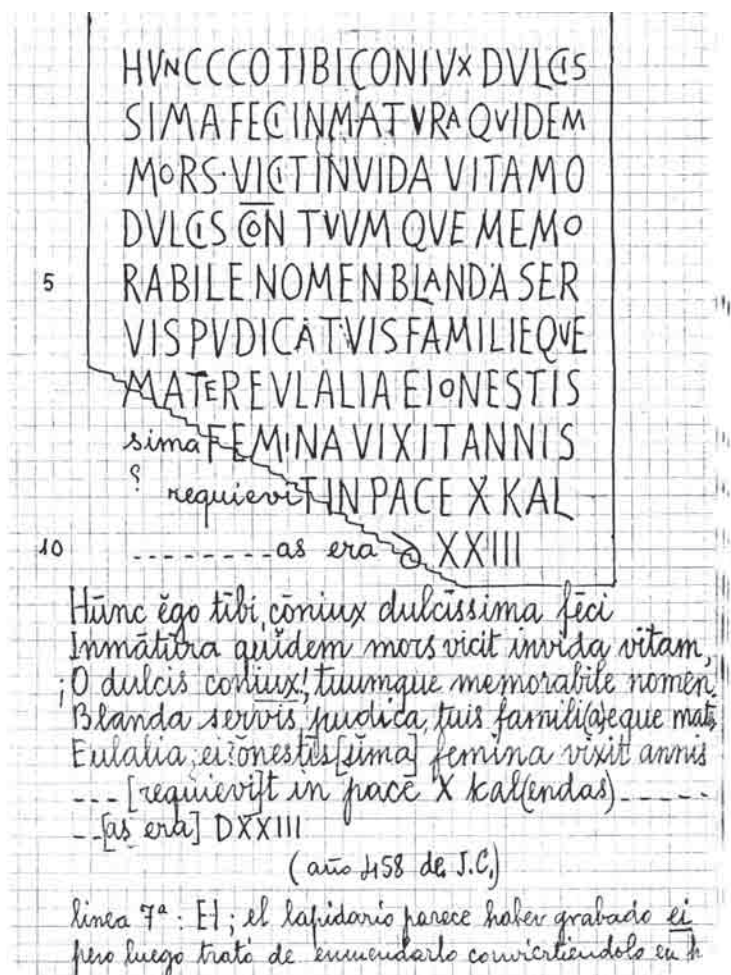 HVNCCCO TIBI CONIVX DVLCIS
SIMA FECI INMATVRA QVIDEM
MORS·VICIT INVIDA VITAM O
DVLCIS CON TVVM QVE MEMO
5 RABILE NOMEN BLANDA SER
VIS PVDICA TVIS FAMILIE QVE
MATER EVLALIA EIONESTIS
sima FEMINA VIXIT ANNIS
? requieviT IN PACE X KAL
10 --------as era XXIII
Hūnc ĕgo tĭbi, cōniux dulcīssima fēci
Inmātūra quidem mors vicit invida vitam,
¡O dulcis coniux!, tuumque memorabile nomen.
Blanda servis, pudica, tuis famili(a)eque mater
Eulalia; ei? ōnestīs[sima] femina vixit annis
--- [requievi]t in pace X kal(endas)------
--[as era] DXXIII
(año 458 de J.C.)
linea 7ª: EI; el lapidario parece haber grabado ei
pero luego trató de enmendarlo convirtiendolo en h